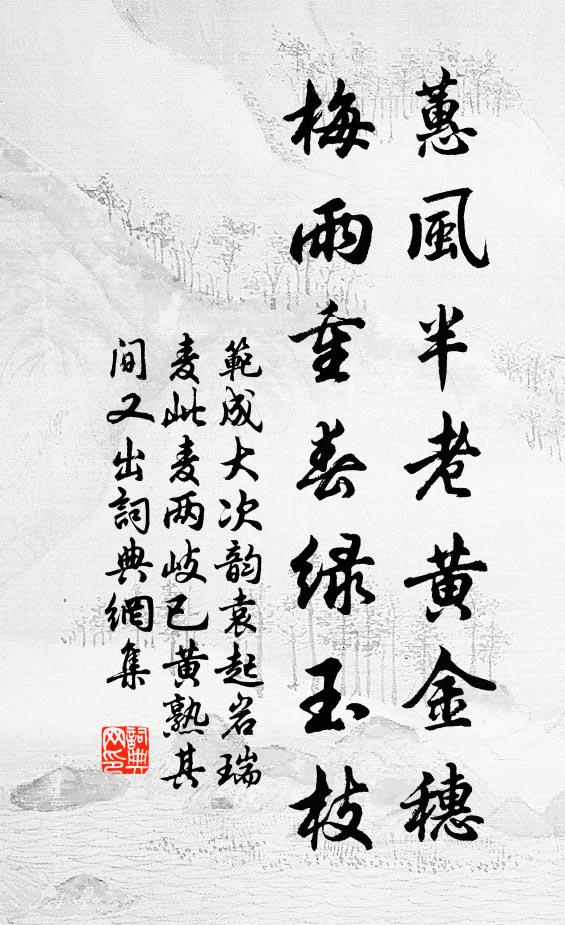 蕙風半老黃金穗
梅雨重春绿玉枝
範成大次韵袁起岩瑞
麦此麦两岐已黄熟其
间又出詞典網集
詞典
网印